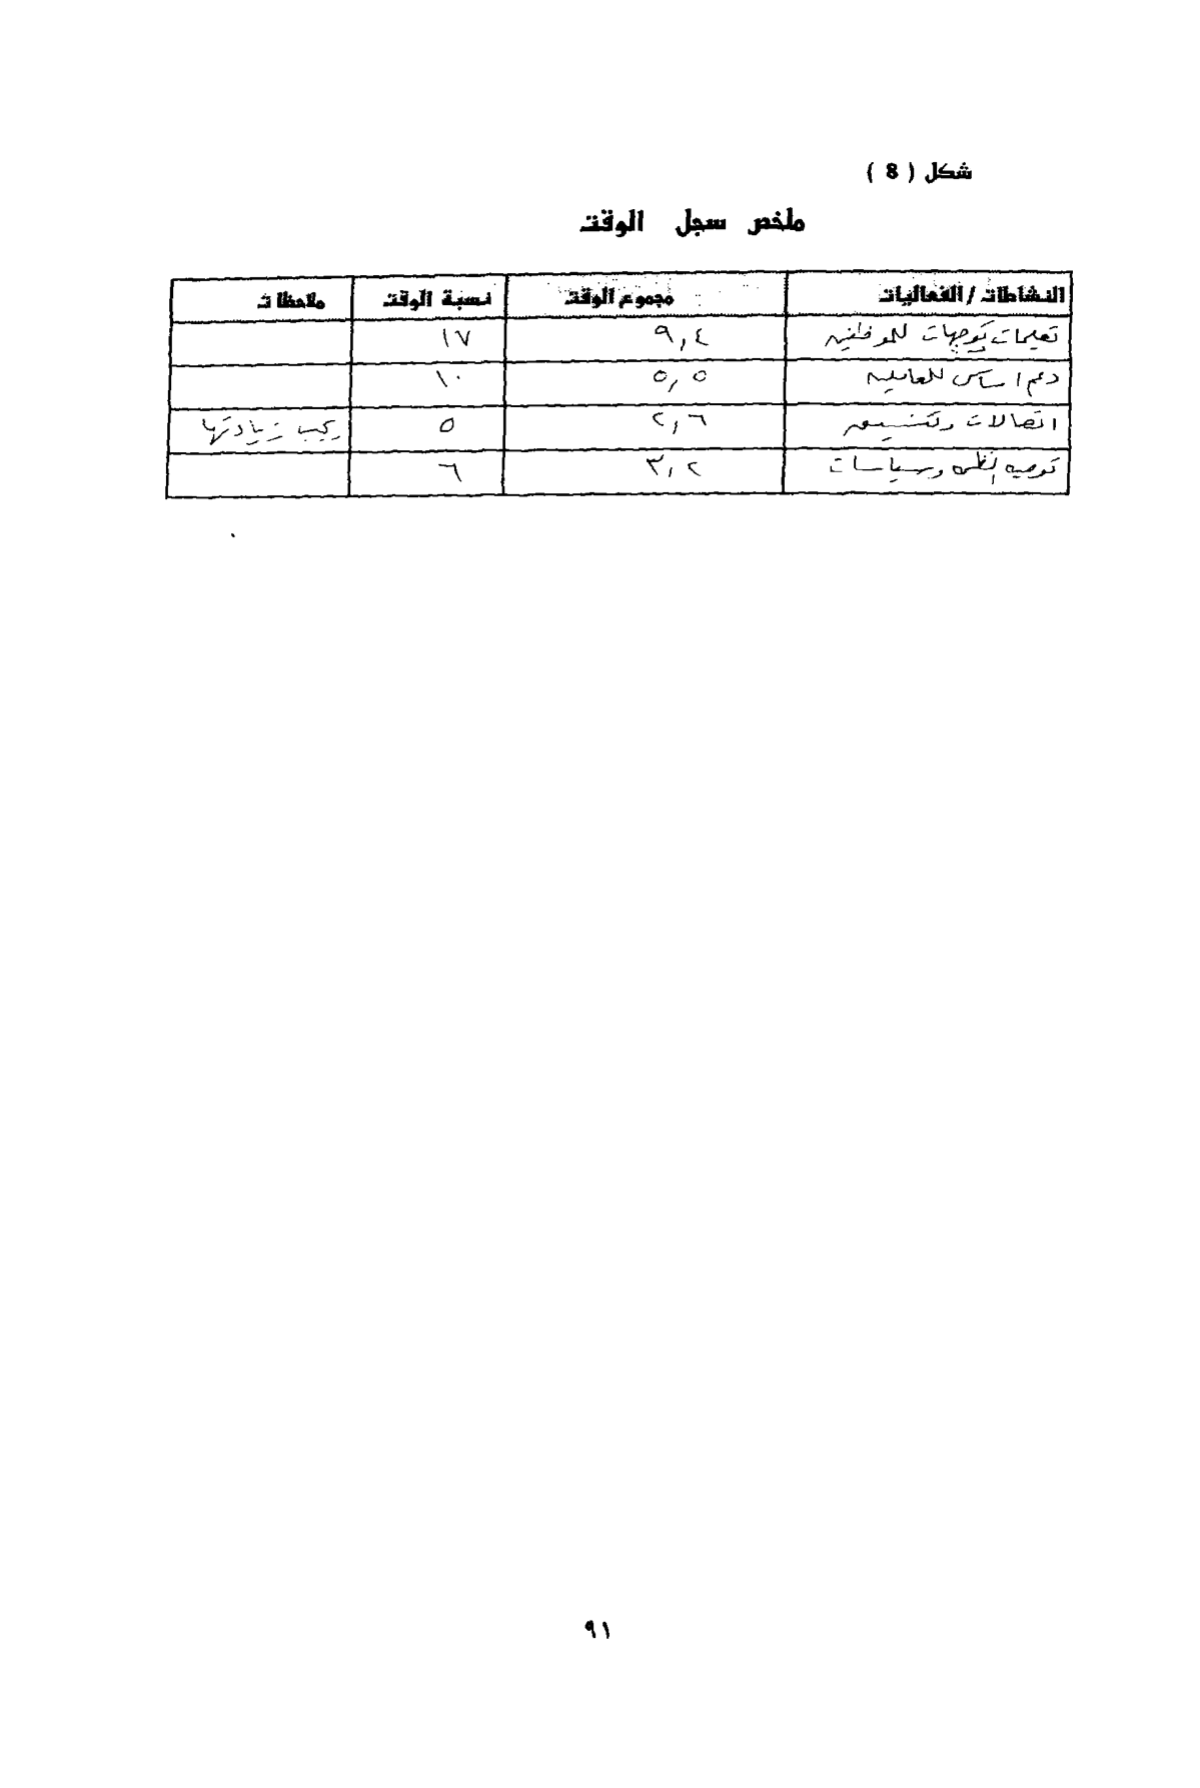 شكل ( 8 )
ملخص سجل الوقت
النشاطات / الفعاليات مجموع الوقت نسبة الوقت ملاحظات
تعليمات وتوجيهات للموظفين ٩,٤ ١٧
دعم اساسى للعاملين ٥,٥ ١٠
اتصالات وتنسيق ٢,٦ ٥ يجب زيادتها
وسياسات ٣,٢ ٦
٩١